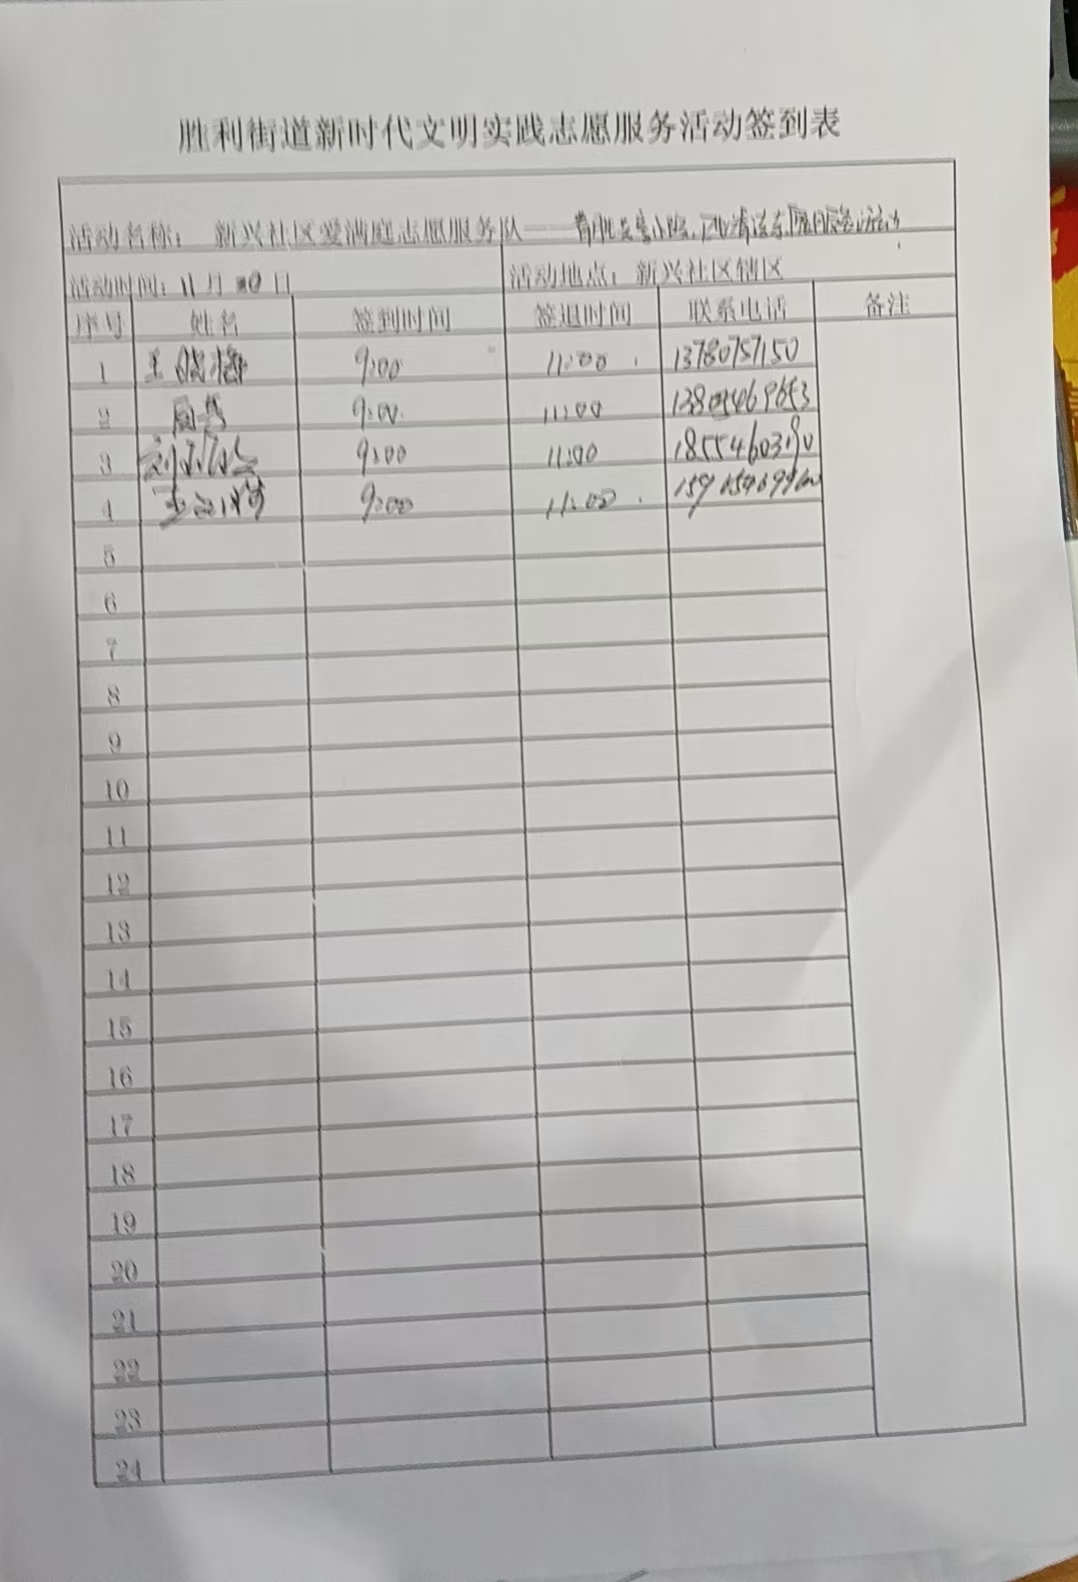 胜利街道新时代文明实践志愿服务活动签到表
活动名称： 新兴社区爱满庭志愿服务队——
活动时间：11月 日 活动地点：新兴社区辖区
序号 姓名 签到时间 签退时间 联系电话 备注
1 王晓梅 9:00 11:00 13780757150
2 周 9:00 11:00
3 刘 9:00 11:00
4 王 9:00 11:00
5
6
7
8
9
10
11
12
13
14
15
16
17
18
19
20
21
22
23
24